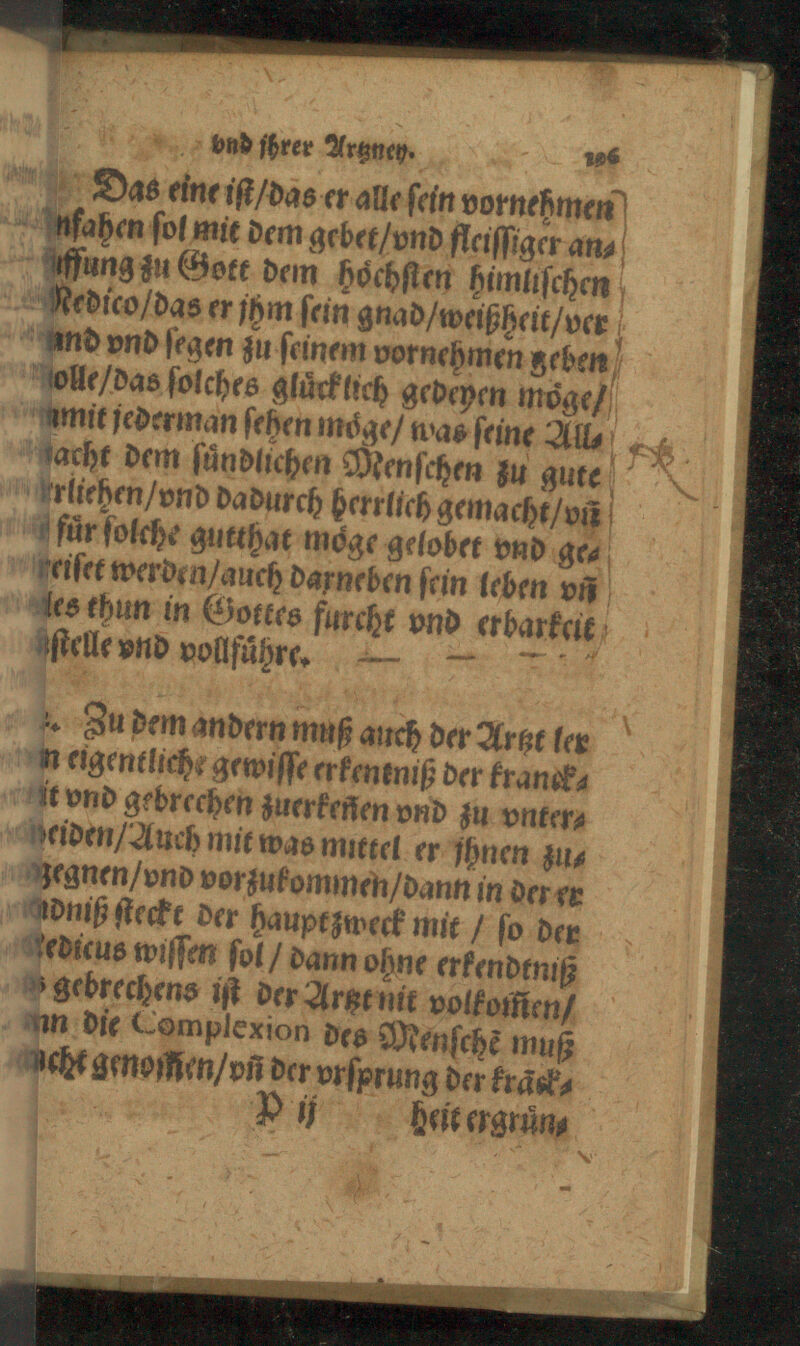 vnd jhrer Artzney. 106
Das eine ist/das er alle sein vornehmen
nfahen sol mit dem gebet/vnd fleissiger an⸗
ffung zu Gott dem hoͤchsten himlischen
edico/das er jhm sein gnad/weißheit/ver
and vnd segen zu seinem vornehmen geben
olle/das solches gluͤcklich gedeyen moͤge/
mit jederman sehen moͤge/ was seine All⸗
acht dem suͤndlichen Menschen zu gute
rliehen/vnd dadurch herrlich gemacht/vñ
fuͤr solche gutthat moͤge gelobet vnd ge⸗
eiset werden/auch darneben sein leben vñ
les thun in Gottes furcht vnd erbarkeit
stelle vnd vollfuͤhre. — — —
Zu dem andern muß auch der Artzt ler
n eigentliche gewisse erkentniß der kranck⸗
it vnd gebrechen zuerkeñen vnd zu vnter⸗
eiden/Auch mit was mittel er jhnen zu⸗
egnen/vnd vorzukommen/dann in der er
dniß steckt der hauptzweck mit / so der
edicus wissen sol / dann ohne erkendtniß
gebrechens ist der Artzt nit volkom̃en/
nn die Complexion des Menschẽ muß
cht genom̃en/vñ der vrsprung der krãck⸗
P ij heit ergruͤn⸗